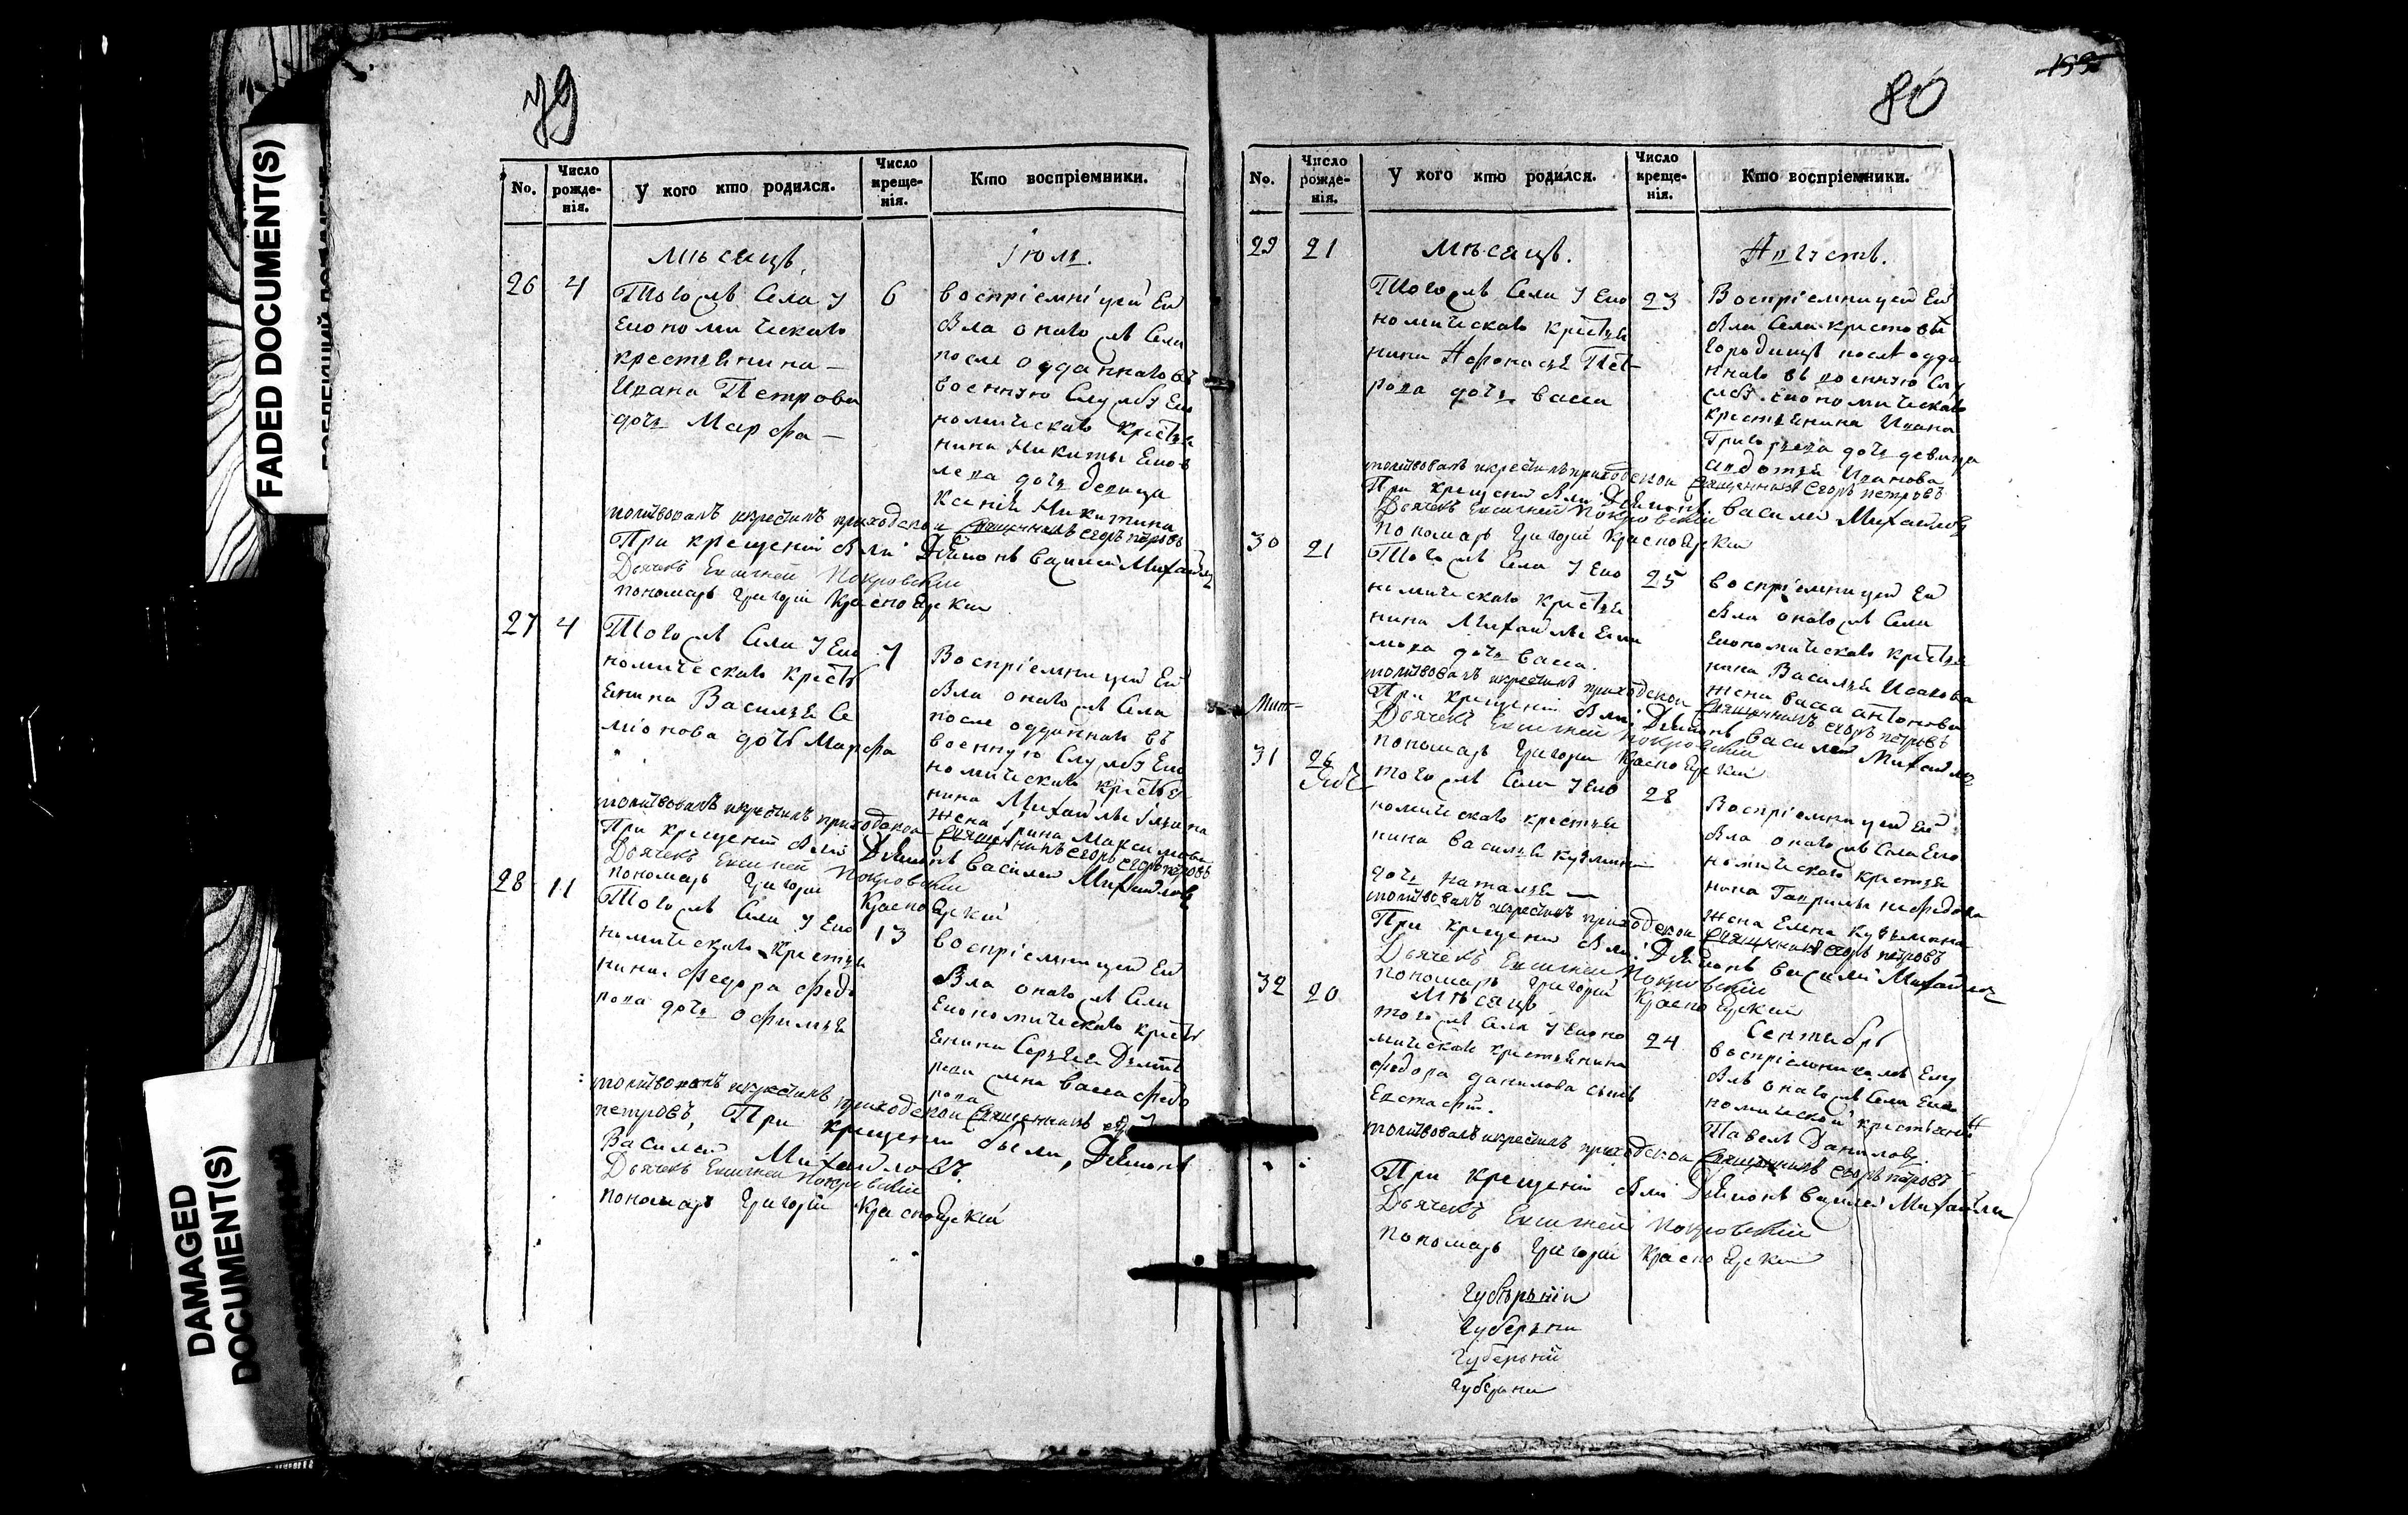 FADED DOCUMENT(S)
DAMAGED
DOCUMENT(S)
79
No.
Число
рожде-
нія.
У кого кто родился.
Число
креще-
нія.
Кто воспріемники.
Мѣсяцъ
Іюль.
26
4
Тогожъ Села У
Економическаго
крестьянина
Ивана Петрова
дочь Марфа
6
воспріемніцей Ей
была оногожъ Села
после отданнаго въ
военную Службу Еко
номическаго Крестья
нина Никиты Яковлева
дочь девица
Ксенія Никитина
молитвовалъ икрестилъ приходской Священникъ Егоръ петровъ
При крещеніи были Діяконъ Василей Михайловъ
Дьячекъ Евгеней Покровскій
пономарь Григорій Красноярскій
27
4
Тогожъ Села У Еко
номическаго Кресть
янина Василья Се
міонова дочь Марфа
7
Воспріемницей Ей
была оногожъ Села
после отданнаго въ
военную Службу Еко
номическаго крестья
нина Михайлы
жена Ірина Максимова
молитвовалъ икрестилъ приходской Священникъ Егоръ петровъ
При крещеніи были Діяконъ Василей Михайловъ
Дьячекъ Евгеней Покровскій
пономарь Григорій Красноярскій
28
11
Тогожъ Села У Еко
номическаго Крестья
нина Федора Федо
рова дочь Офимья
13
воспріемницей Ей
была оногожъ Села
Економическаго Кресть
янина Сергея Дмит
рева жена васса Федо
рова
молитвовалъ икрестилъ приходской Священникъ
петровъ, При крещеніи были, Діяконъ
Василей Михайловъ.
Дьячекъ Евгеней Покровскій
пономарь Григорій Красноярскій
80
No.
Число
рожде-
нія.
У кого кто родился.
Число
креще-
нія.
Кто воспріемники.
29
21
Мѣсяцъ.
Августъ.
Тогожъ Села У Еко
номическаго крестья
нина Афонасья Пет
рова дочь васса
23
Воспріемницей Ей
была Села
городища после отда
ннаго въ военную Слу
жбу економическаго
крестьянина Ивана
Григорьева дочь девица
авдотья Иванова
молитвовалъ икрестилъ приходской Священникъ Егоръ петровъ
При крещеніи были Діяконъ Василей Михайловъ
Дьячекъ Евгеней Покровскій
пономарь Григорій Красноярскій
30
21
Тогожъ Села У Еко
номическаго крестья
нина Михайлы
дочь васса.
25
воспріемницей Ей
была оногожъ Села
Економическаго крестья
нина Василья Исакова
жена васса антонова
молитвовалъ икрестилъ приходской Священникъ Егоръ петровъ
При крещеніи были Діяконъ Василей Михайловъ
Дьячекъ Евгеней Покровскій
пономарь Григорій Красноярскій
31
26
тогожъ Села У Еко
номическаго крестья
нина василья кузмина
дочь наталья
28
Воспріемницей Ей
была оногожъ Села Еко
номическаго крестья
нина Гаврилы нефедова
жена Елена кузьмина
молитвовалъ икрестилъ приходской Священникъ Егоръ петровъ
При крещеніи были Діяконъ василей Михайловъ
Дьячекъ Евгеней Покровскій
пономарь Григорій Красноярскій
32
20
Мѣсяцъ
Сентябрь
тогожъ Села У Еконо
мическаго крестьянина
федора данилова сынъ
Евстафій.
24
воспріемникомъ Ему
былъ оногожъ Села Еко
номической крестьянинъ
Павелъ Даниловъ.
молитвовалъ икрестилъ приходской Священникъ Егоръ петровъ
При крещеніи были Діяконъ василей Михайловъ
Дьячекъ Евгеней Покровскій
пономарь Григорій Красноярскій
Губерьніи
Губерьни
Губерьніи
Губерни